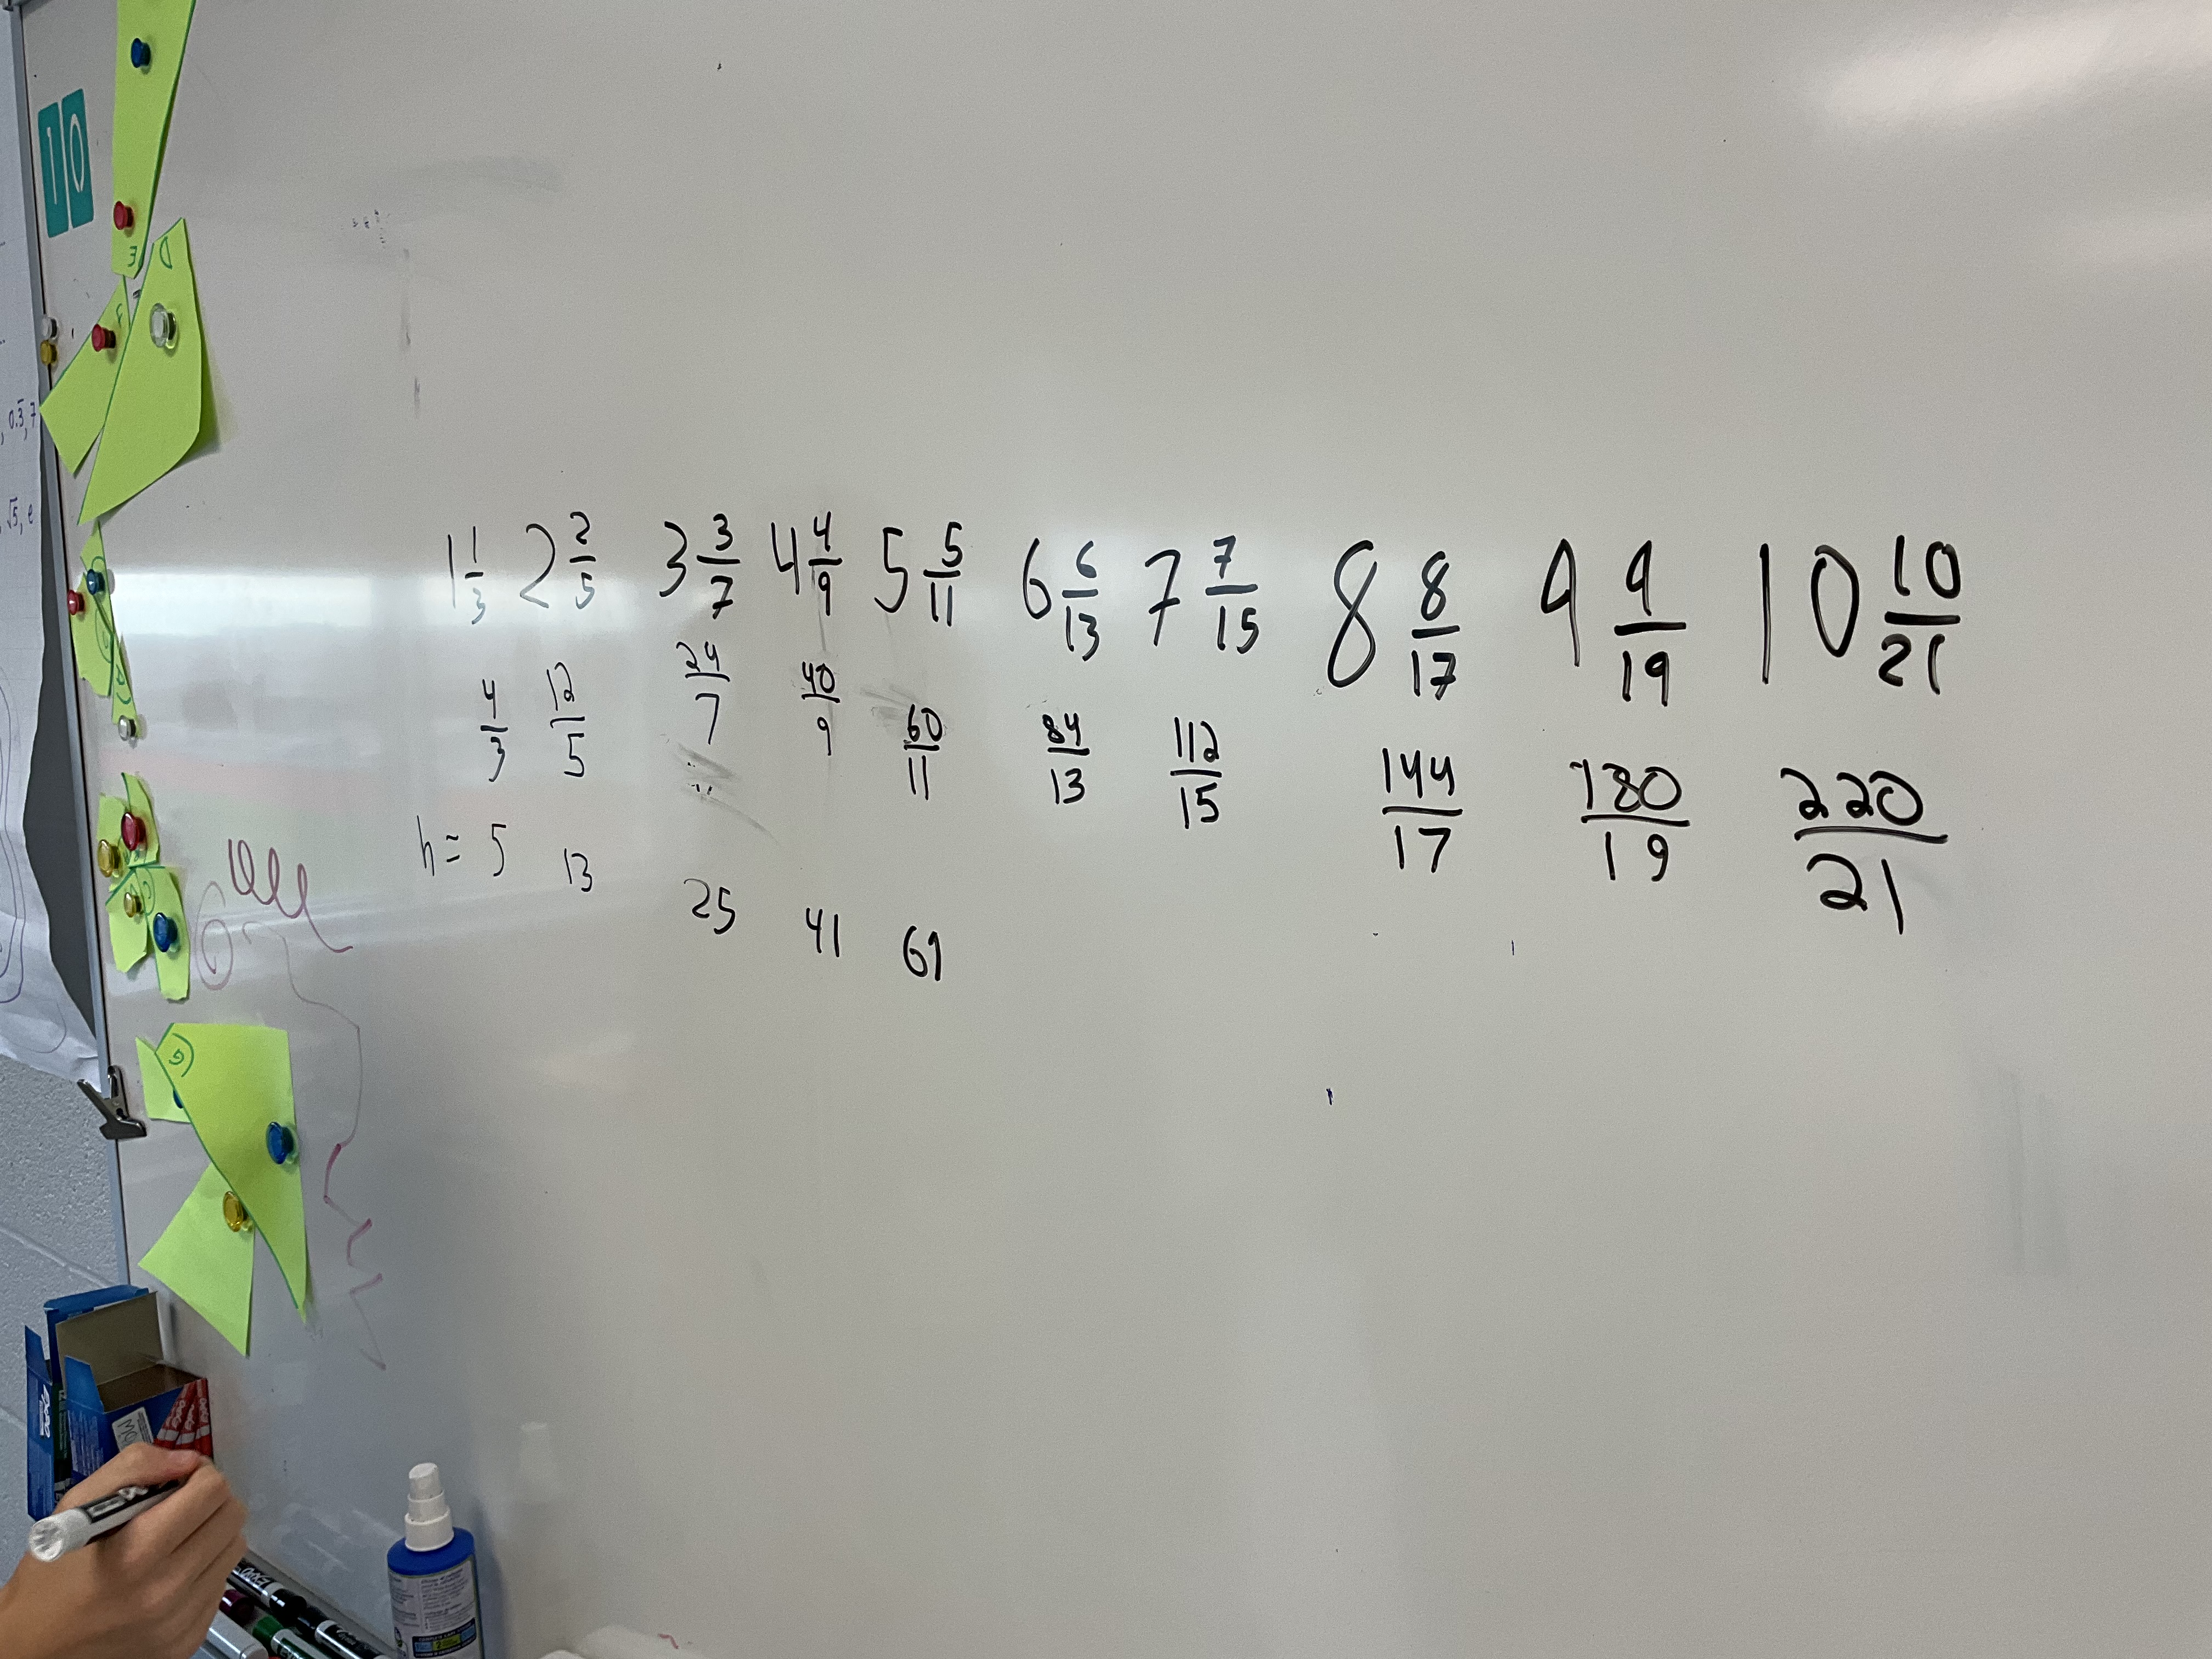 10
E
D
F
, 0.3̅, 7
, √5, e
1 1/3 2 2/5 3 3/7 4 4/9 5 5/11 6 6/13 7 7/15 8 8/17 9 9/19 10 10/21
4/3 12/5 24/7 40/9 60/11 84/13 112/15 144/17 180/19 220/21
h = 5 13 25 41 61
G
EXPO
EXPO